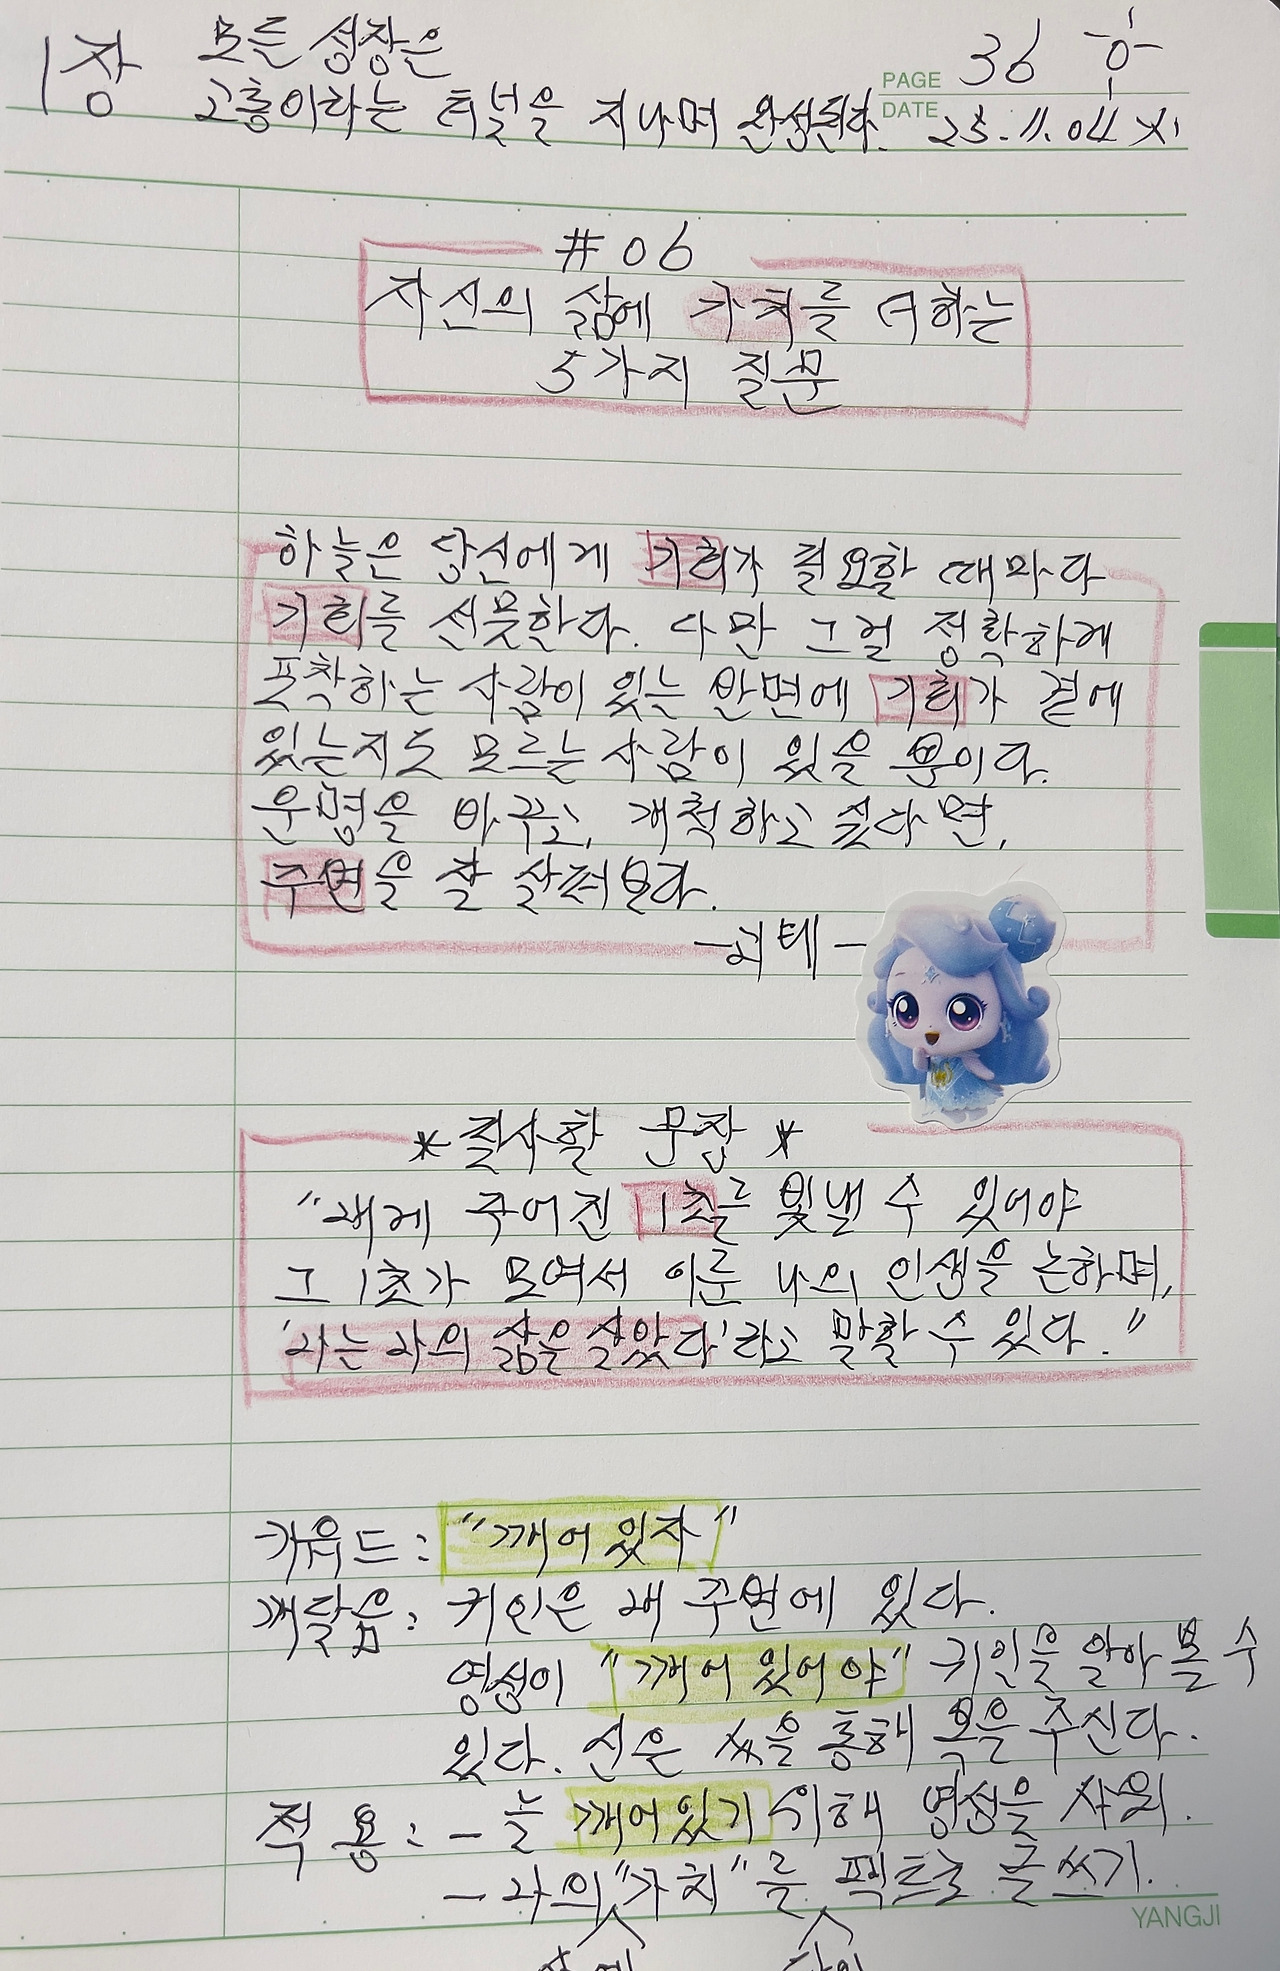 1장 모든 성장은
고통이라는 터널을 지나며 완성된다.
PAGE 36
DATE 25.11.04
#06
자신의 삶에 가치를 더하는
5가지 질문
하늘은 당신에게 기회가 필요할 때마다
기회를 선물한다. 다만 그걸 정확하게
포착하는 사람이 있는 반면에 기회가 곁에
있는지도 모르는 사람이 있을 뿐이다.
운명을 바꾸고, 개척하고 싶다면,
주변을 잘 살펴보라.
-괴테-
*필사할 문장*
"내게 주어진 1초를 빛낼 수 있어야
그 1초가 모여서 이룬 나의 인생을 논하며,
'나는 나의 삶을 살았다'라고 말할 수 있다."
키워드: "깨어있자"
깨달음: 귀인은 내 주변에 있다.
영성이 "깨어 있어야" 귀인을 알아 볼 수
있다. 신은 을 통해 복을 주신다.
적용: - 늘 깨어있기 위해 영성을
- 나의 "가치"를 팩트로 글쓰기.
YANGJI